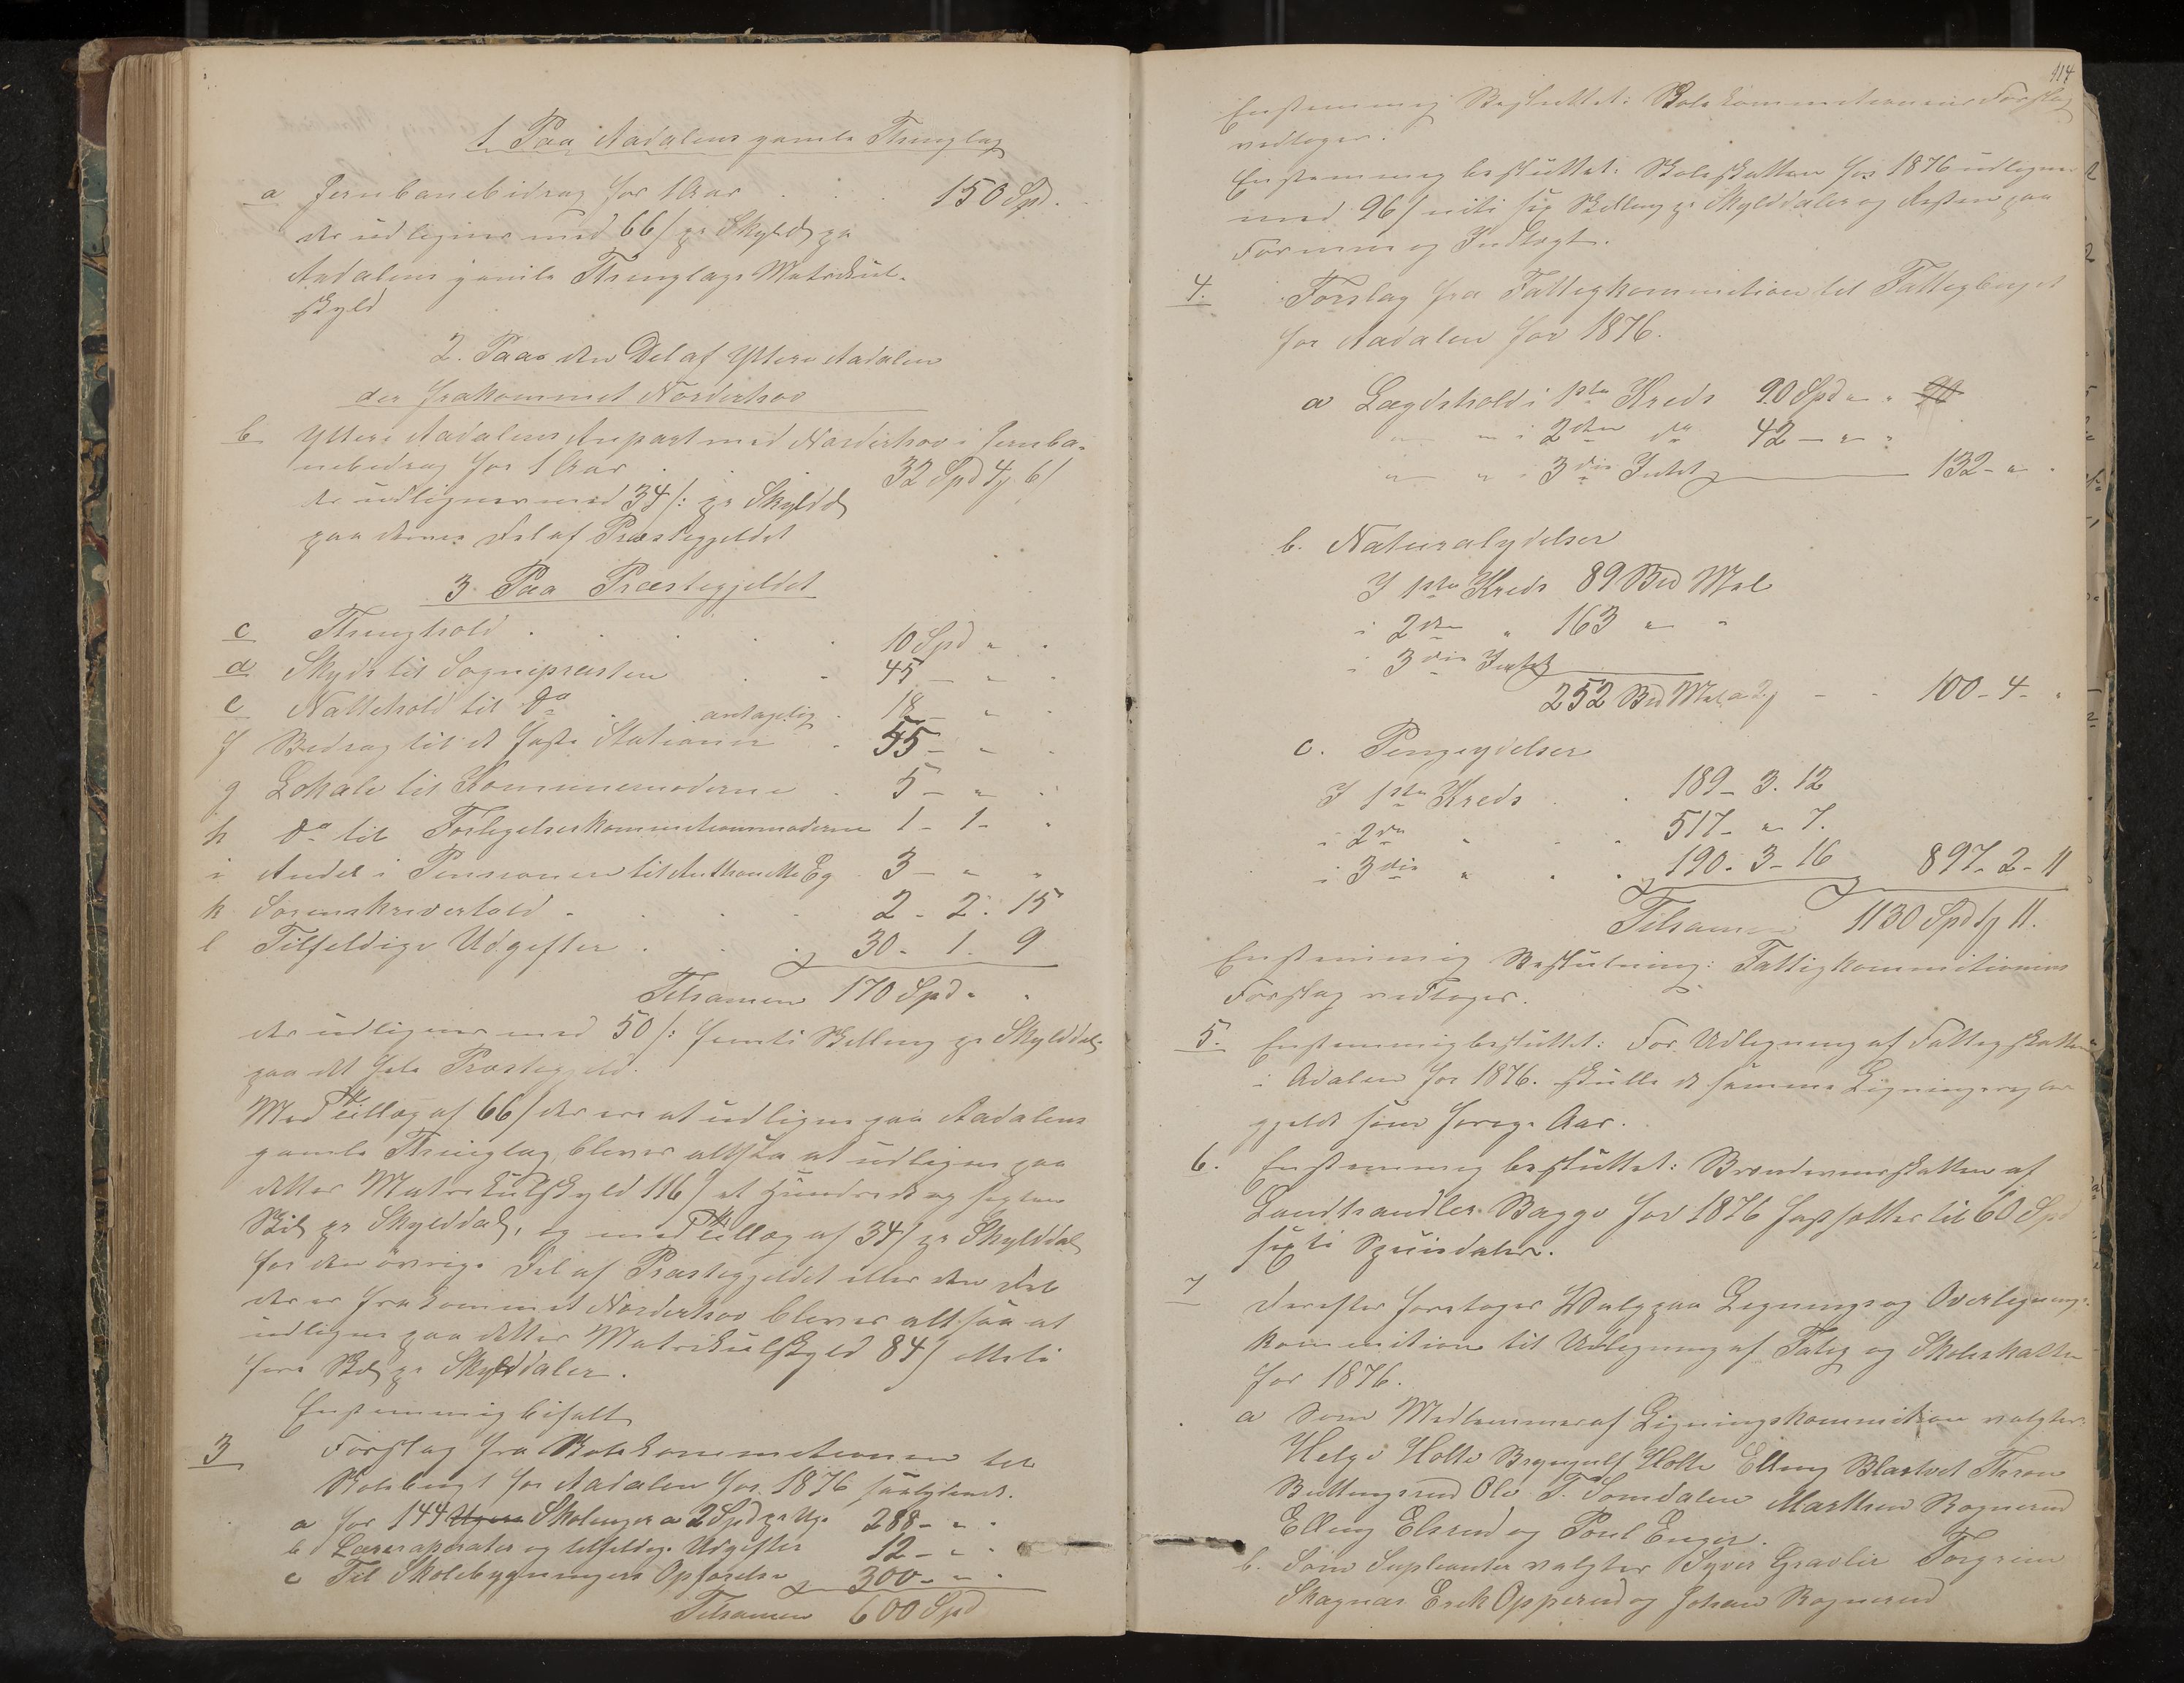 1 Paa Aadalens gamle Thinglag
a Jernbanebidrag for 1 Aar . . . 150 Spd.
der udlignes med 66 s pr Skyldd paa
Aadalens gamle Thinglags Matrikul-
skyld
2. Paa den Del af Ytere Aadalen
der frakommet Norderhov
b Ytere Aadalens Anpart med Norderhov i Jernba-
nebidrag for 1 Aar . . . 32 Spd 4 6 s
der udlignes med 34 s: pr Skyldd
paa denne Del af Præstegjeldet
3 Paa Præstegjeldet
c Thinghold . . . . 10 Spd " "
d Skyds til Sognepræsten . . 45 - " "
e Nattehold til do . antagelig . 18 - " "
f Bidrag til de faste Stationer . 55 - " "
g Lokale til Kommunemøderne . 5 - " "
h do til Forligelseskommissionsmøderne 1 - 1 - "
i Andel i Pensionen til Anthonette Eg 3 - " "
k Sorenskrivertold . . . 2 - 2 - 15
l Tilfeldige Udgifter . . . 30 - 1 - 9
Tilsamen 170 Spd " "
der udlignes med 50 s: femti Skilling pr Skylddal
paa det hele Præstegjeld.
Med Tillæg af 66 s der ere at udligne paa Aadalens
gamle Thinglag, bliver altsaa at udligne paa
dettes Matrikulskyld 116 s et Hundrede og sexten
Skil pr Skylddal, og med Tillæg af 34 s pr Skylddal
for den øvrige Del af Præstegjeldet eller den Del
der er frakommet Norderhov bliver altsaa at
udligne paa dettes Matrikulskyld 84 s otteti
fire Skil pr Skylddaler.
Enstemmig bifalt
3 Forslag fra Skolekommissionen til
Skolebuget for Aadalen for 1876 saalydende.
a for 144 Uger Skoleuger a 2 Spd pr Uge 288 - " "
b Læreraparater og tilfeldige Udgifter 12 - " "
c Til Skolebygningers Opførelse 300 - " "
Tilsamen 600 Spd
114
Enstemmig Besluttet: Skolekommissionens Forslag
vedtages.
Enstemmig besluttet: Skoleskatten for 1876 udlignes
med 96 s niti sex Skilling pr Skylddaler og Resten paa
Formue og Indtægt.
4. Forslag fra Fattigkommissionen til Fattigbuget
for Aadalen for 1876.
a Lægdshold i 1ste Kreds 90 Spd " " 90
" " i 2den do 42 - " "
" " i 3die Intet 132 - " "
b. Naturalydelser
I 1ste Kreds 89 Bd Mel
i 2den " 163 " "
i 3die Intet
252 Bd Mel a 2 - - 100 - 4 - "
c. Pengeydelser
I 1ste Kreds . . 189 - 3 - 12
i 2den " . . 517 - " 7.
i 3die " . . 190 - 3 - 16 897 - 2 - 11
Tilsamen 1130 Spd 1 11.
Enstemmig Beslutning: Fattigkommissionens
Forslag vedtages.
5. Enstemmig besluttet: For Udligning af Fattigskatten
i Adalen for 1876. skulle de samme Ligningsregler
gjelde som forige Aar.
6. Enstemmig besluttet: Brændevinsskatten af
Landhandler Bagge for 1876 fastsattes til 60 Spd
sexti Speciedaler.
7 Derefter foretoges Valg paa Lignings og Overlignings-
kommission til Udligning af Fatig og Skoleskatten
for 1876.
a Som Medlemmer af Ligningskommission valgtes:
Helge Holte Brynjulf Holte Elling Blaktvet Thron
Buttingsrud Ole T. Somdalen Marthin Rognerud
Elling Elsrud og Poul Enger.
b. Som Supleanter valgtes Syver Gravlie Torgrim
Skagnæs Erik Opperud og Johan Rognerud